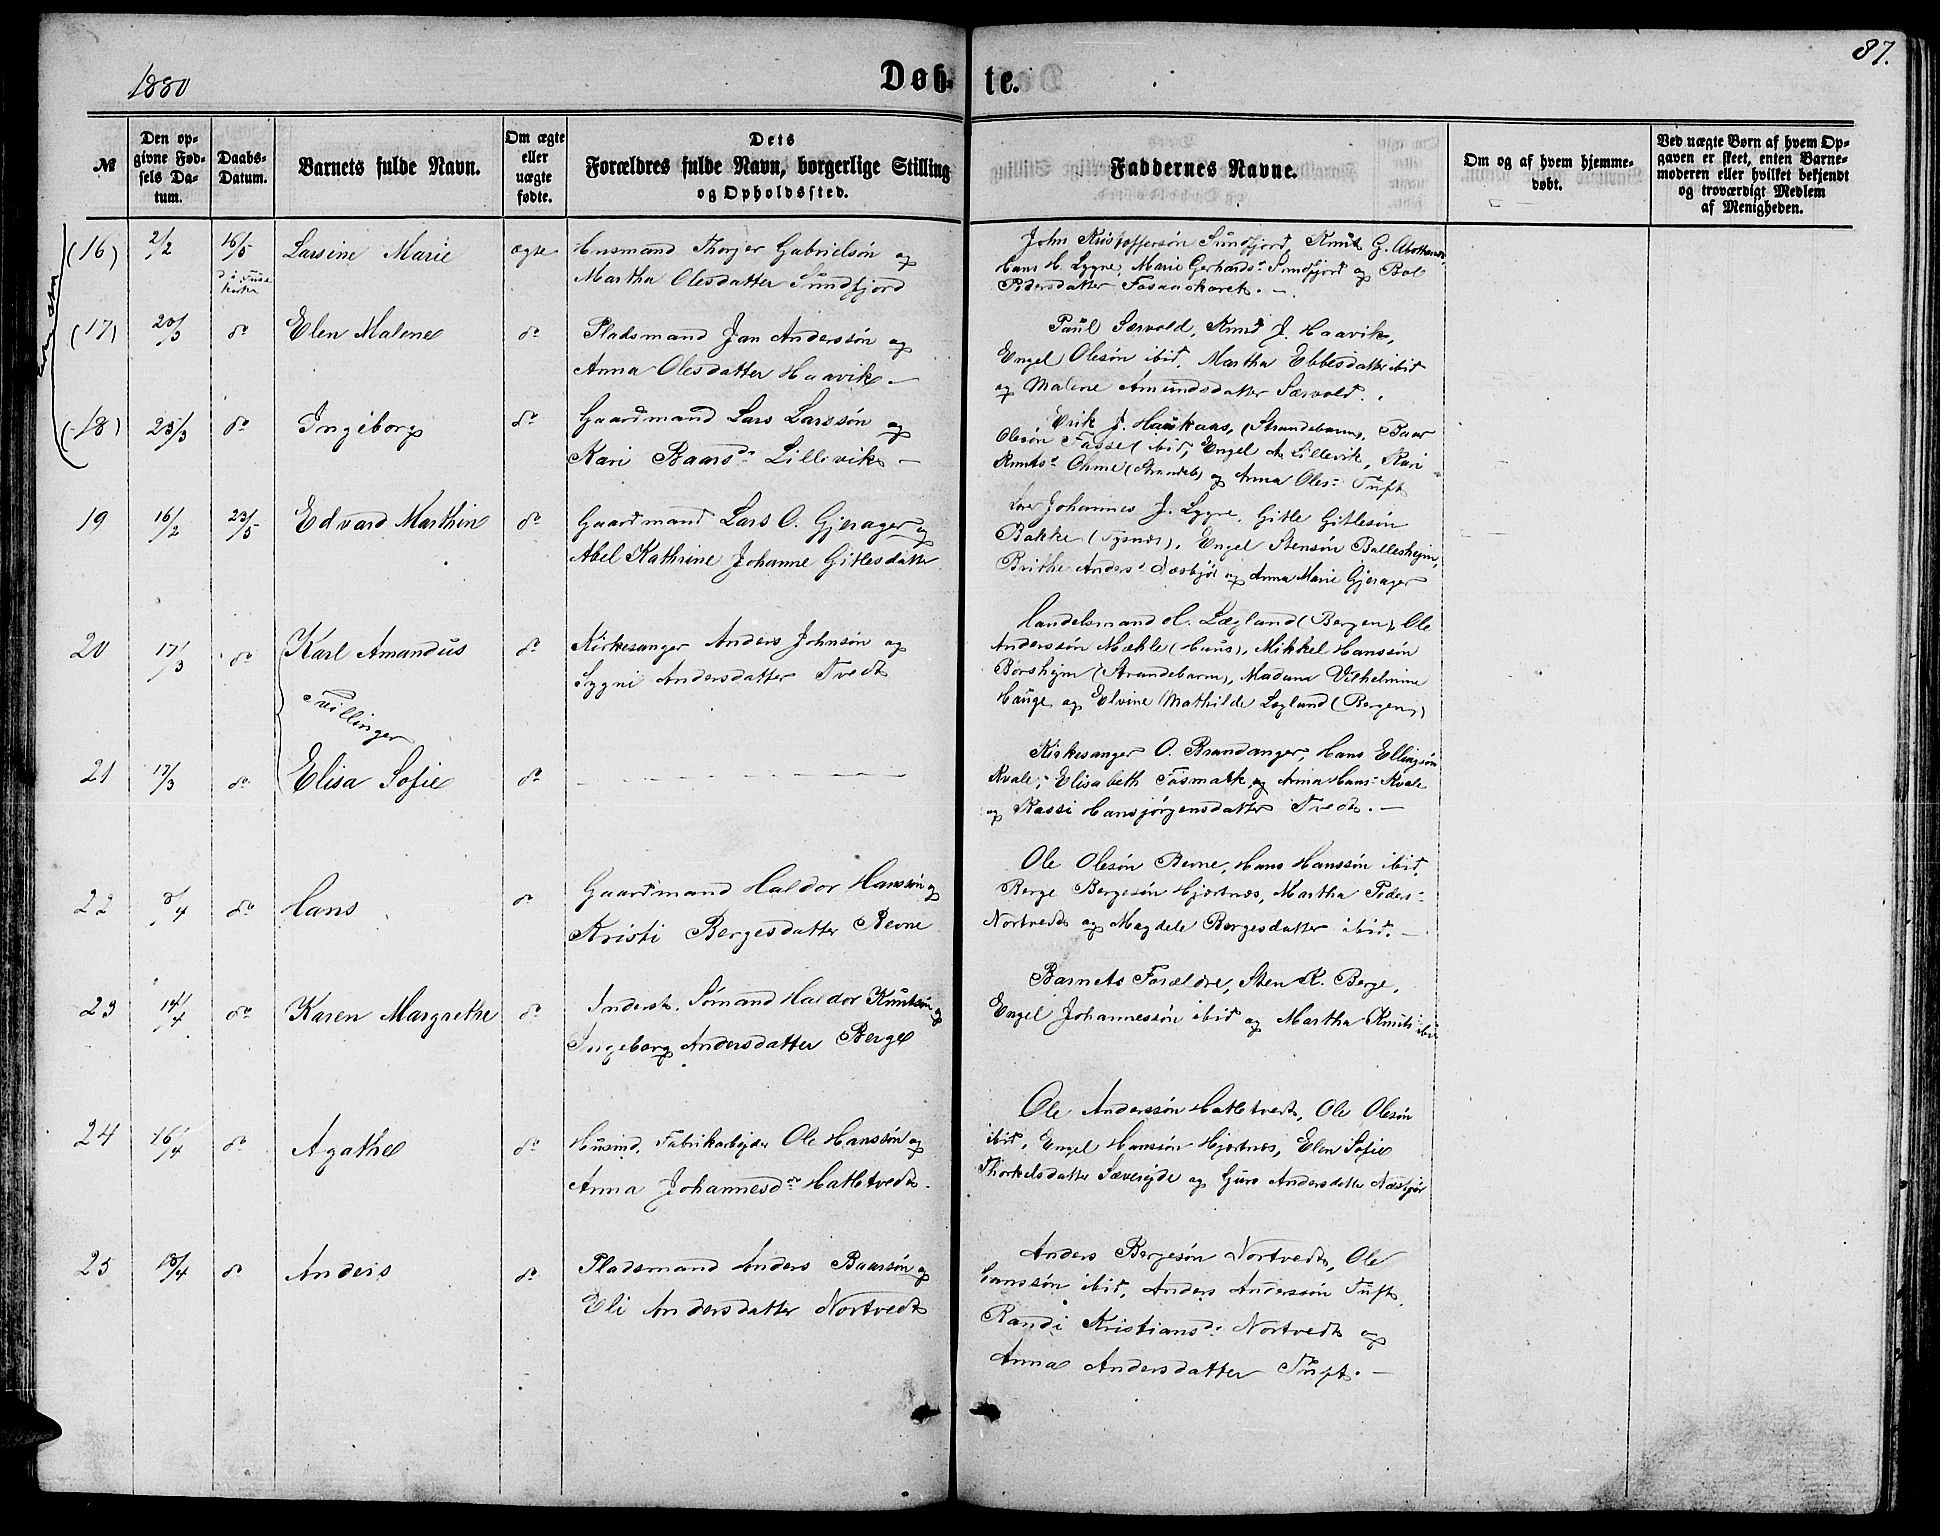 1880
Døb-te.
87.
№
Den opgivne Fødsels Datum.
Daabs-Datum.
Barnets fulde Navn.
Om ægte eller uægte fødte.
Dets Forældres fulde Navn, borgerlige Stilling og Opholdssted.
Faddernes Navne.
Om og af hvem hjemmedøbt.
Ved uægte Børn af hvem Opgaven er skeet, enten Barnemoderen eller hvilket bekjendt og troværdigt Medlem af Menigheden.
(16) 2/2 16/5 Larsine Marie ægte Husmand Thorger Gabrielsøn og
Martha Olesdatter Sundfjord
John Kristoffersøn Sundfjord, Knut G.
Hans H. Lygre, Marie Gerhards- Sundfjord og
Pedersdatter
(17) 20/3 do Elen Malene do Pladsmand Jan Anderssøn og
Anna Olesdatter Haavik -
Paul Særvold, Knud J. Haavik,
Engel Olesøn ibid, Martha Ebbesdatter ibid
og Malene Amundsdatter Særvold.
(18) 23/3 do Ingeborg do Gaardmand Lars Larssøn og
Kari Baarsdr Lillevik -
Erik J. Haukaas, (Strandebarm), Baar
Olesøn ibid, Engel A. Lillevik, Kari
Knuts- (Strandeb) og Anna Oles- Tuft
19 16/2 23/5 Edvard Marthin do Gaardmand Lars O. Gjerager og
Abel Kathrine Johanne Gitlesdatter
Johannes J. Lygre, Gitle Gitlesøn
Bakke (Tysnæs), Engel Stensøn Ballesheim,
Brithe Anders- og Anna Marie Gjerager
20 17/3 do Karl Amandus do Kirkesanger Anders Johnsøn og
Sygni Andersdatter Tvedt
Handelsmand H. Lægland (Bergen), Ole
Anderssøn Mæhle (Haus), Mikkel Hanssøn
Borsheim (Strandebarm), Madame Vilhelmine
Hauge og Elvine Mathilde Lægland (Bergen)
Tvillinger
21 17/3 do Elisa Sofie do
Kirkesanger O. Brandanger, Hans Ellingsøn
Kvale, Elisabeth og Anna Hans- Kvale
og Kassi Hansjørgensdatter Tvedt. -
22 8/4 do Hans do Gaardmand Haldor Hanssøn og
Kristi Bergesdatter Revne
Ole Olesøn Revne, Hans Hanssøn ibid,
Berge Bergesøn Hjertnæs, Martha Peders-
Nortvedt og Magdele Bergesdatter ibid. -
23 14/4 do Karen Margrethe do Inderst. Sømand Haldor Knutsøn og
Ingeborg Andersdatter Berge
Barnets Forældre, Sten K. Berge,
Engel Johannessøn ibid og Martha Knuts ibid
24 16/4 do Agathe do Husmd. Fabrikarbejder Ole Hanssøn og
Anna Johannesdr Hatletvedt.
Ole Anderssøn Hatletvedt, Ole Olesøn
ibid, Engel Hanssøn Hjertnæs, Elen Sofie
Thorkelsdatter Sævereide og Guro Andersdatter
25 18/4 do Anders do Pladsmand Anders Baarsøn og
Eli Andersdatter Nortvedt
Anders Bergesøn Nortvedt, Ole
Hanssøn ibid, Anders Anderssøn Tuft,
Randi Kristiansdr Nortvedt og
Anna Andersdatter Tuft. -